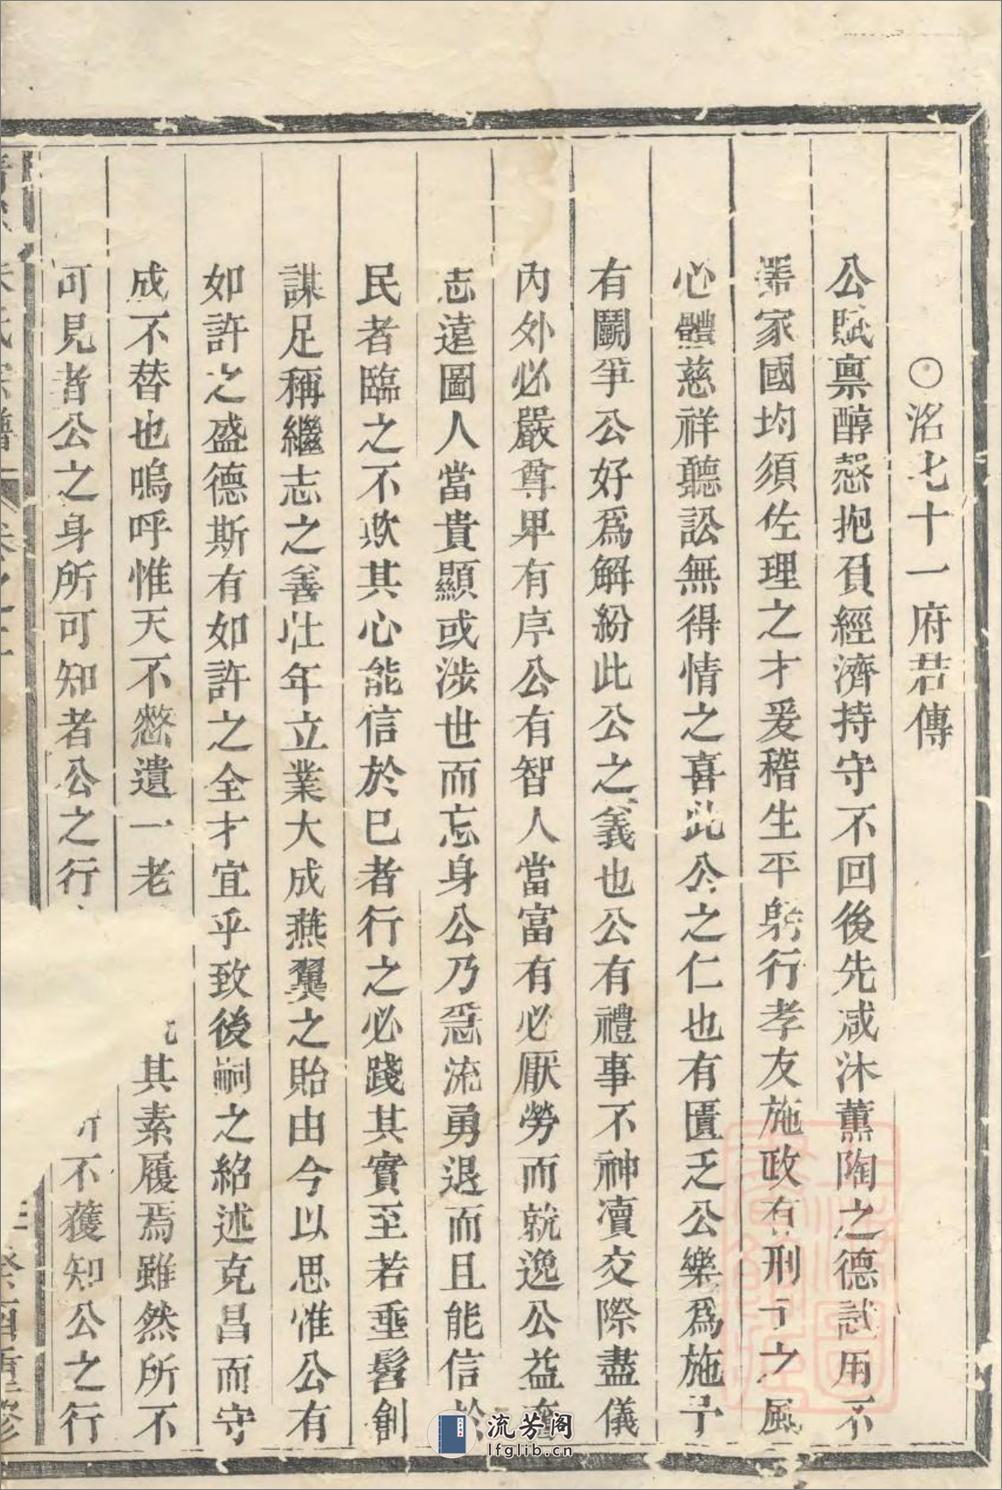 ○洺七十一府君傳
公賦禀醇愨抱負經濟持守不回後先咸沐薰陶之德試用不
器家國均須佐理之才爰稽生平躬行孝友施政有刑于之風
心體慈祥聽訟無得情之喜此公之仁也有匱乏公樂爲施予
有鬭爭公好爲解紛此公之義也公有禮事不神凟交際盡儀
內外必嚴尊卑有序公有智人當富有必厭勞而就逸公益奮
志遠圖人當貴顯或涉世而忘身公乃急流勇退而且能信於
民者臨之不欺其心能信於已者行之必踐其實至若垂髫創
謀足稱繼志之善壯年立業大成燕翼之貽由今以思惟公有
如許之盛德斯有如許之全才宜乎致後嗣之紹述克昌而守
成不替也嗚呼惟天不憗遺一老其素履焉雖然所不
可見者公之身所可知者公之行不獲知公之行
朱氏宗譜 卷之 三 癸酉重修
流芳阁
lfglib.cn